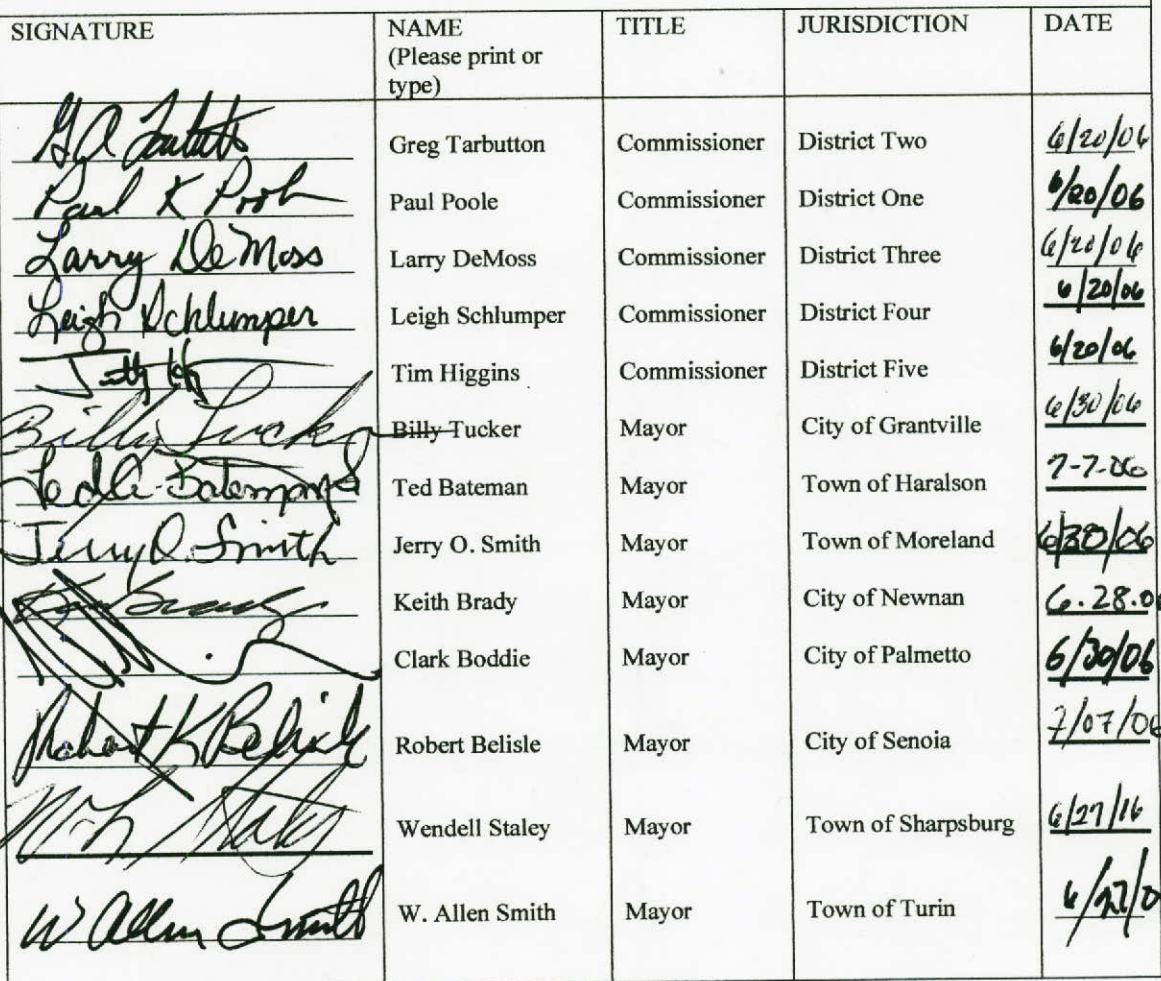 SIGNATURE NAME TITLE JURISDICTION DATE
(Please print or
type)
Greg Tarbutton Commissioner District Two 6/20/06
Paul K Poole Paul Poole Commissioner District One 6/20/06
Larry DeMoss Larry DeMoss Commissioner District Three 6/20/06
Leigh Schlumper Leigh Schlumper Commissioner District Four 6/20/06
Tim Higgins Commissioner District Five 6/20/06
Billy Tucker Billy Tucker Mayor City of Grantville 6/30/06
Ted Bateman Mayor Town of Haralson 7-7-06
Jerry O. Smith Jerry O. Smith Mayor Town of Moreland 6/30/06
Keith Brady Mayor City of Newnan 6.28.0
Clark Boddie Mayor City of Palmetto 6/30/06
Robert K Belisle Robert Belisle Mayor City of Senoia 7/07/06
Wendell Staley Mayor Town of Sharpsburg 6/27/16
W Allen Smith W. Allen Smith Mayor Town of Turin 6/27/0